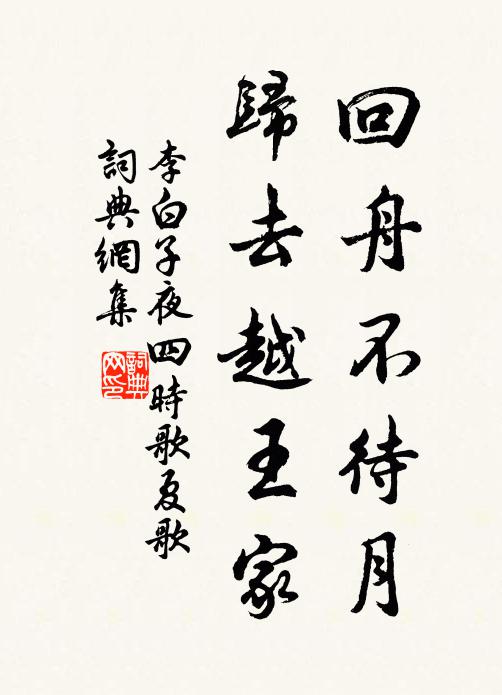 回舟不待月
歸去越王家
李白子夜四時歌夏歌
詞典網集
詞典網印